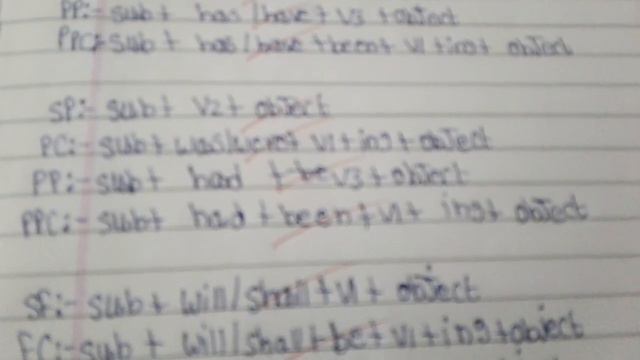 PP:- sub + has/have + V3 + object
PPC:- sub + has/have + been + V1 + ing + object
SP:- sub + V2 + object
PC:- sub + was/were + V1 + ing + object
PP:- sub + had + V3 + object
PPC:- sub + had + been + V1 + ing + object
SF:- sub + will/shall + V1 + object
FC:- sub + will/shall + be + V1 + ing + object